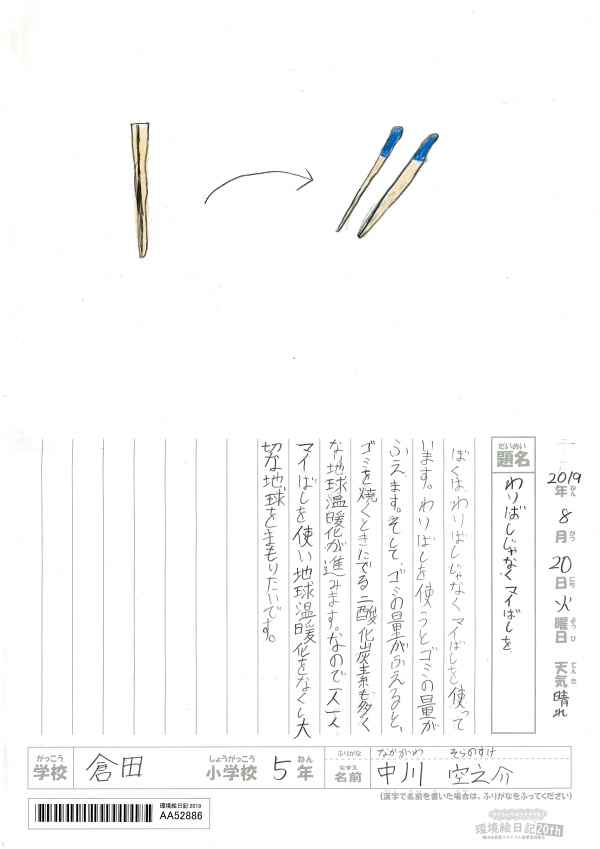 2019年ねん8月がつ20日にち火曜日ようび 天気てんき晴れ
だいめい
題名
わりばしじゃなくマイばしを
ぼくは、わりばしじゃなくマイばしを使って
います。わりばしを使うとゴミの量が
ふえます。そして、ゴミの量がふえると、
ゴミを焼くときにでる二酸化炭素も多く
なり地球温暖化が進みます。なので一人一人
マイばしを使い地球温暖化をなくし大
切な地球をまもりたいです。
がっこう
学校 倉田
しょうがっこう ねん
小学校 5年
ふりがな なかがわ そらのすけ
なまえ
名前 中川 空之介
(漢字で名前を書いた場合は、ふりがなをふってください)
環境絵日記 2019
AA52886
環境絵日記20th